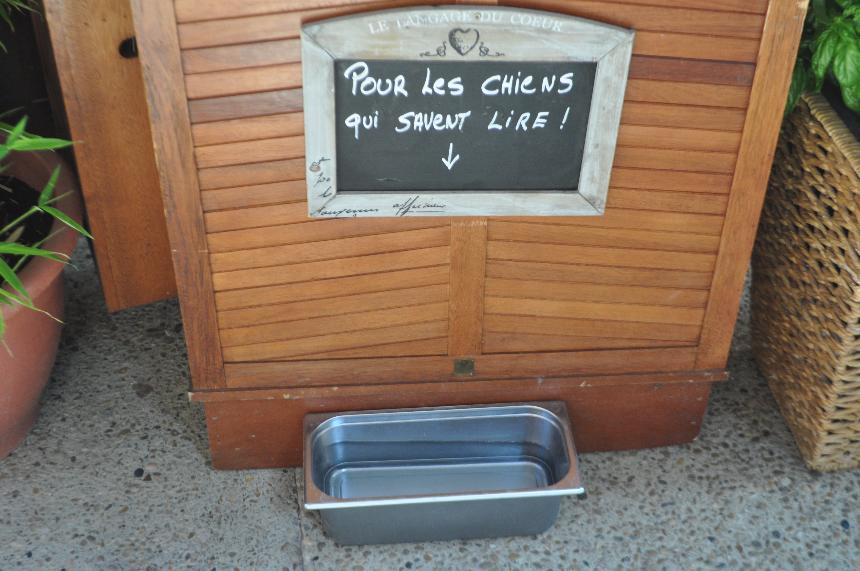 LE LANGAGE DU COEUR
POUR LES CHIENS
QUI SAVENT LIRE !
↓